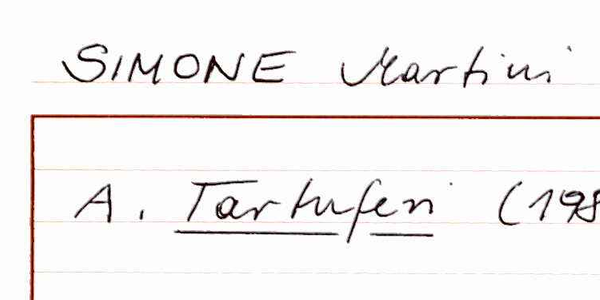 SIMONE Martini
A. Tartuferi (198